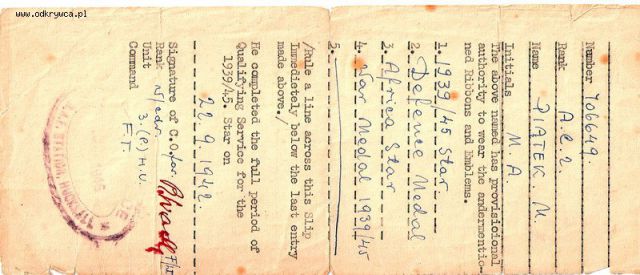 www.odkrywca.pl
Number 706649.
Rank A.C.2
Name PIĄTEK. M.
Initials M. A.
The above named has provisicional
authority to wear the andermentio-
ned Ribbons and Emblems.
1. 1939/45 Star.
2. Defence Medal
3. Africa Star
4. War Medal 1939/45
5.
/Rule a line across this Slip
Immedietely below the last entry
made above./
He completed the full period of
Qualifying Service for the
1939/45. Star on
22.9.1942.
Signature of C.O. for
Rank
Unit 3.(P) H.U.
Command F.T.